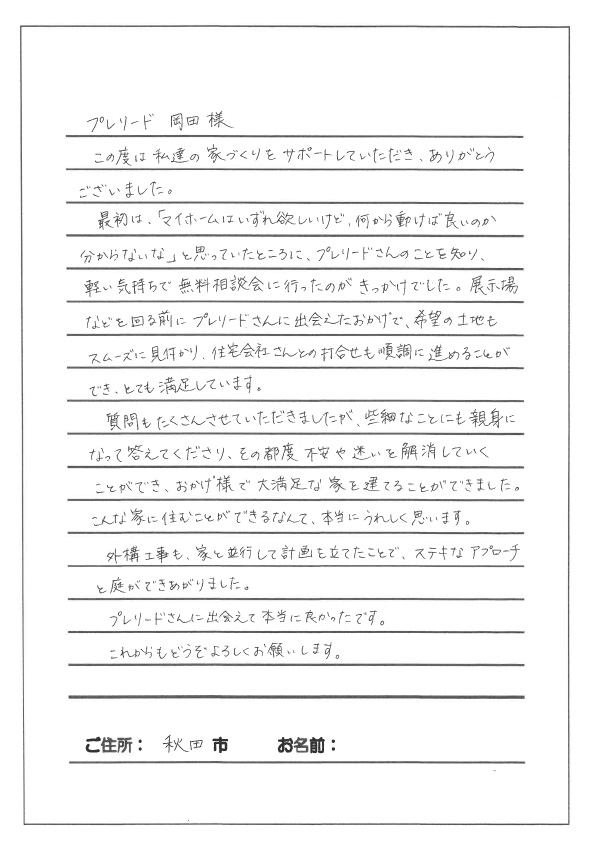 プレリード 岡田様
この度は私達の家づくりをサポートしていただき、ありがとう
ございました。
最初は、「マイホームはいずれ欲しいけど、何から動けば良いのか
分からないな」と思っていたところに、プレリードさんのことを知り、
軽い気持ちで無料相談会に行ったのがきっかけでした。展示場
などを回る前にプレリードさんに出会えたおかげで、希望の土地も
スムーズに見付かり、住宅会社さんとの打合せも順調に進めることが
でき、とても満足しています。
質問もたくさんさせていただきましたが、些細なことにも親身に
なって答えてくださり、その都度不安や迷いを解消していく
ことができ、おかげ様で大満足な家を建てることができました。
こんな家に住むことができるなんて、本当にうれしく思います。
外構工事も、家と並行して計画を立てたことで、ステキなアプローチ
と庭ができあがりました。
プレリードさんに出会えて本当に良かったです。
これからもどうぞよろしくお願いします。
ご住所： 秋田 市 お名前：